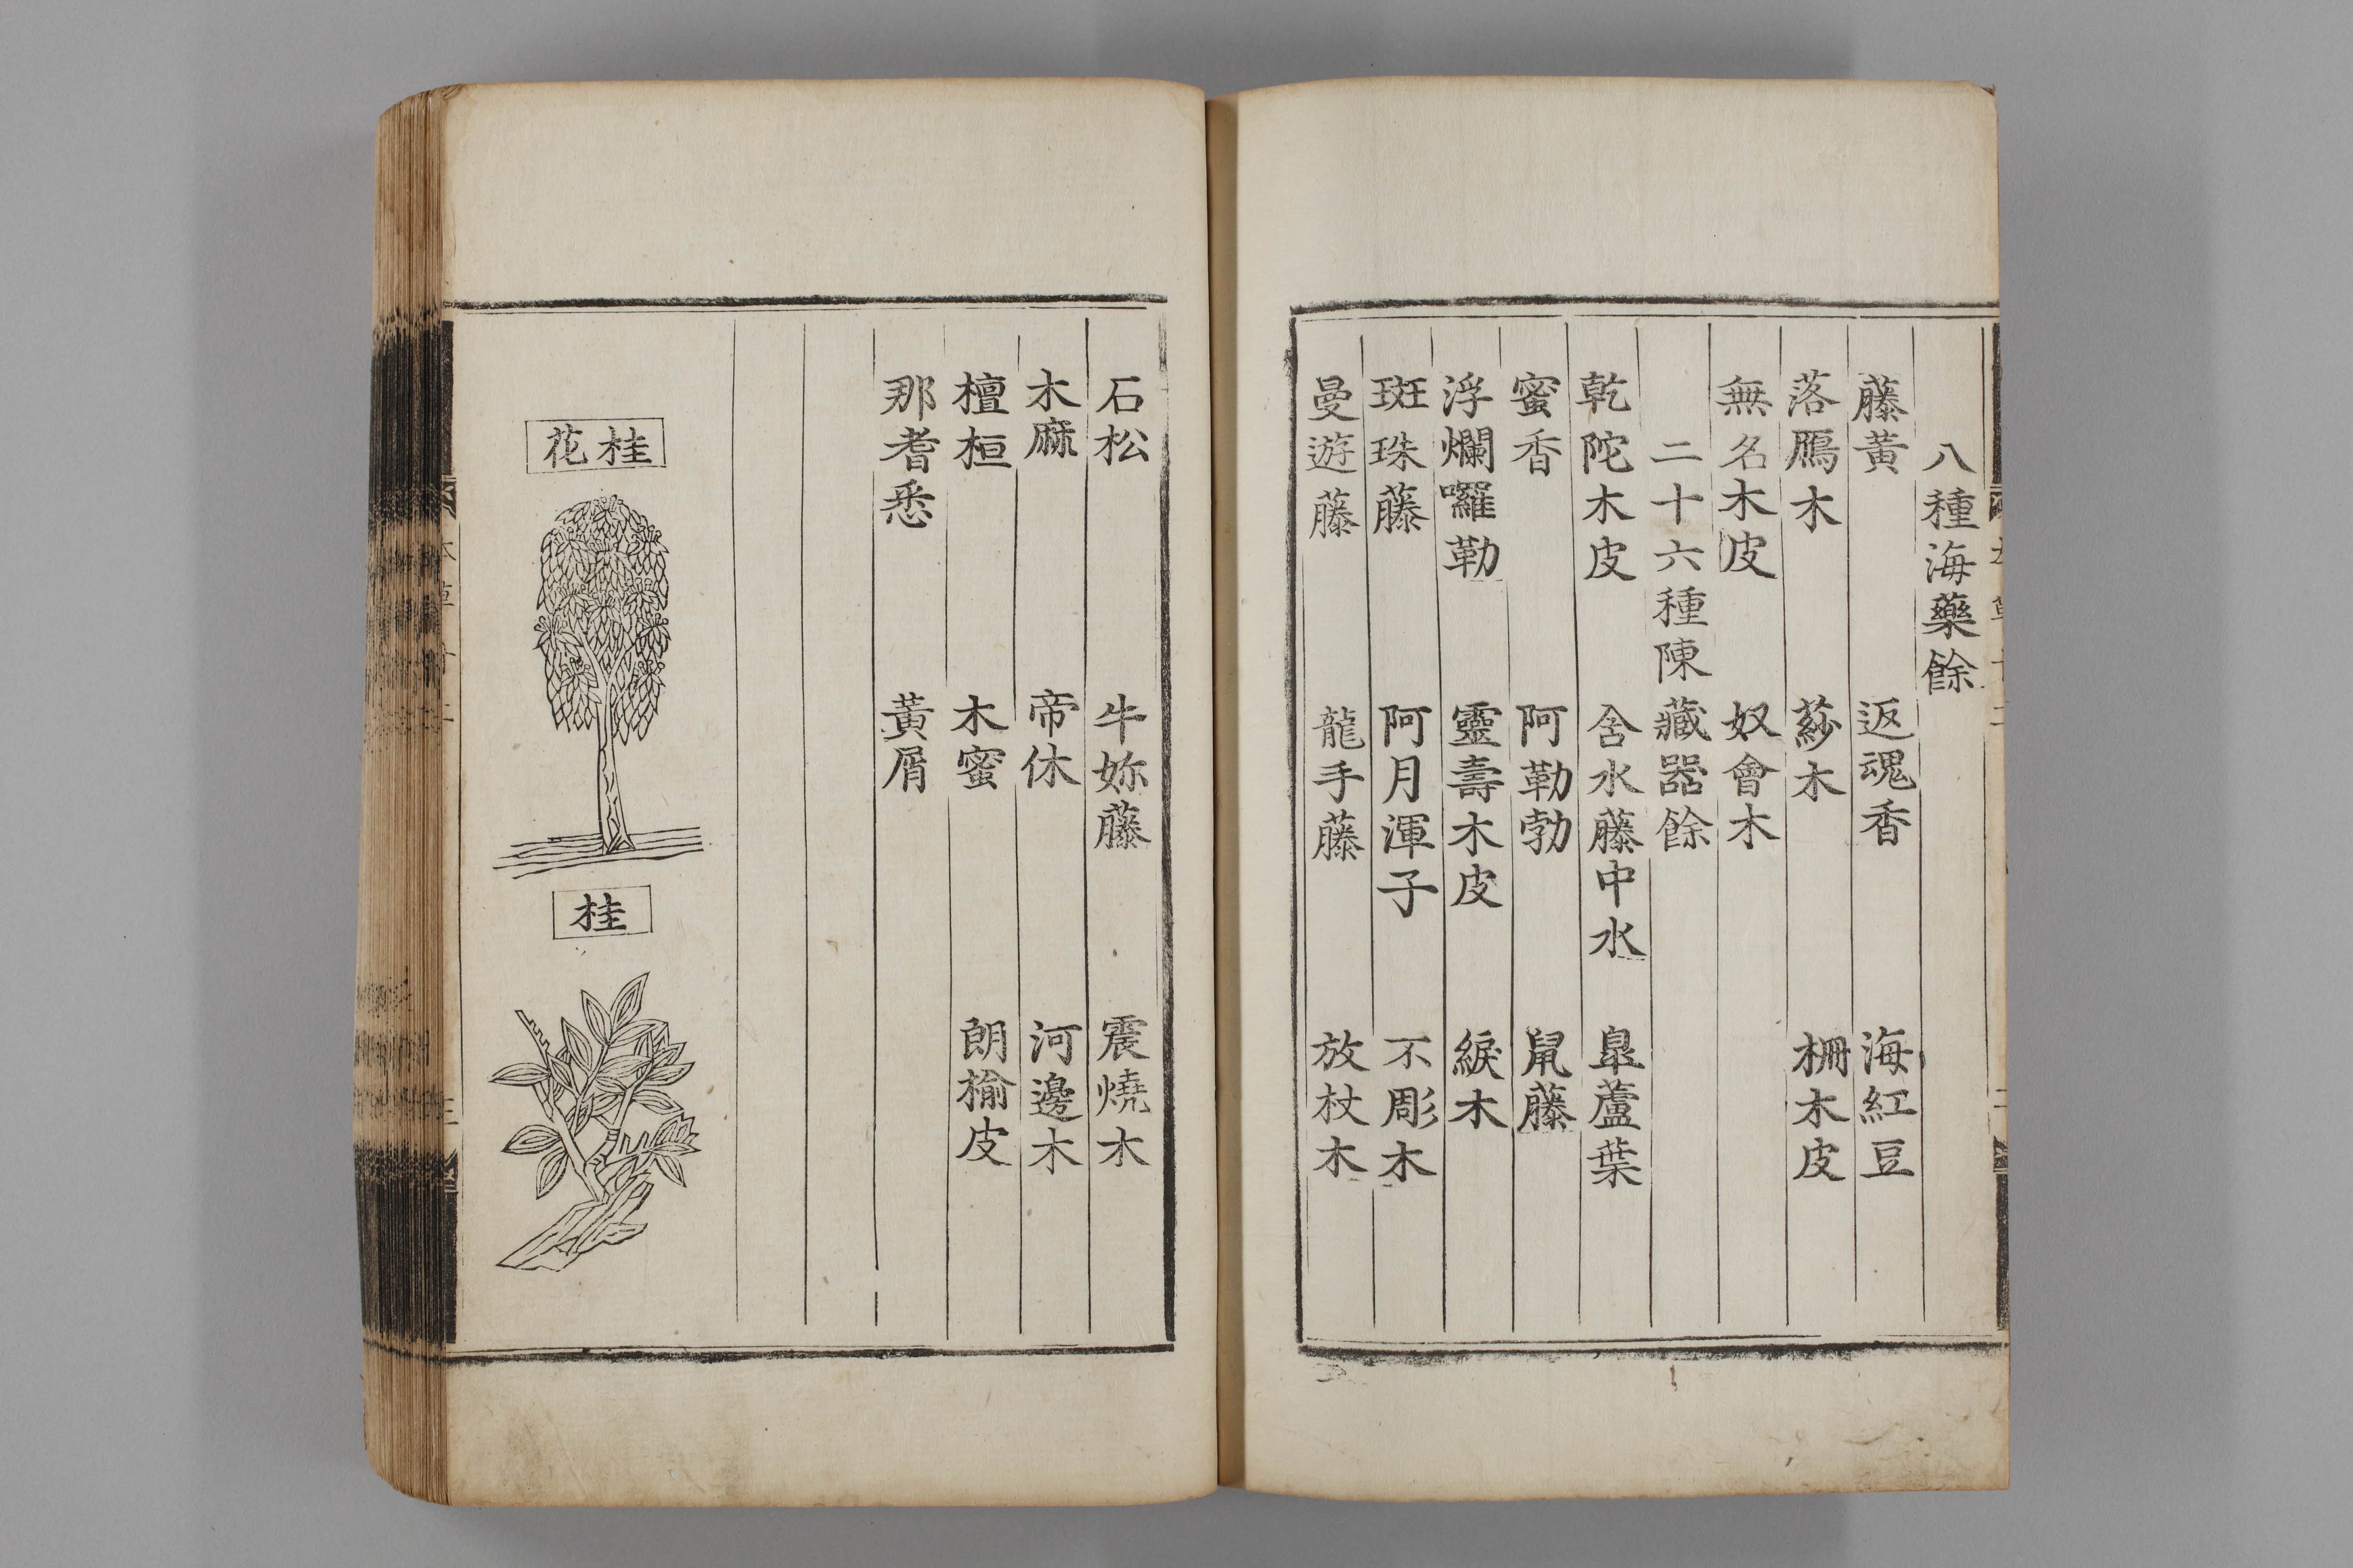 八種海藥餘
藤黃 返魂香 海紅豆
落鴈木 莎木 柵木皮
無名木皮 奴會木
二十六種陳藏器餘
乾陀木皮 含水藤中水 皐蘆葉
蜜香 阿勒勃 鼠藤
浮爛囉勒 靈壽木皮 綟木
斑珠藤 阿月渾子 不彫木
曼遊藤 龍手藤 放杖木
石松 牛妳藤 震燒木
木麻 帝休 河邊木
檀桓 木蜜 朗榆皮
那耆悉 黃屑
桂花
桂